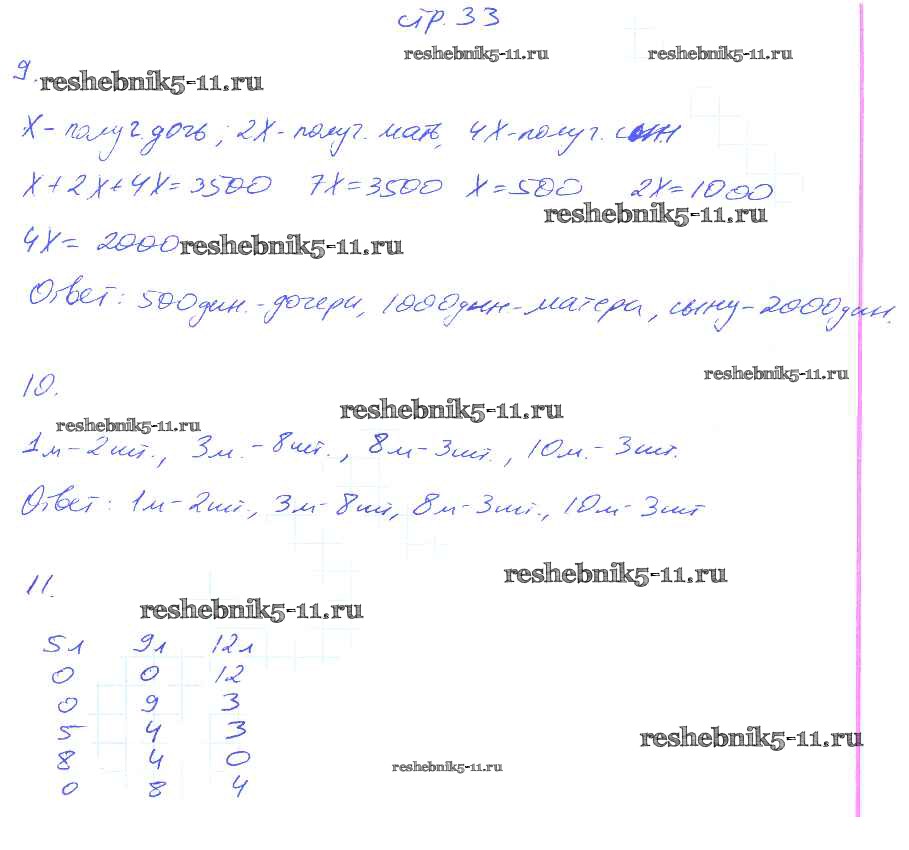 стр. 33
reshebnik5-11.ru reshebnik5-11.ru
9. reshebnik5-11.ru
X - получ. дочь; 2X - получ. мать, 4X - получ. сын
X + 2X + 4X = 3500 7X = 3500 X = 500 2X = 1000
reshebnik5-11.ru
4X = 2000 reshebnik5-11.ru
Ответ: 500 дин. - дочери, 1000 дин - матери, сыну - 2000 дин.
reshebnik5-11.ru
10.
reshebnik5-11.ru
reshebnik5-11.ru
1м - 2 шт., 3м. - 8 шт., 8м - 3 шт., 10м. - 3 шт.
Ответ: 1м - 2 шт., 3м - 8 шт, 8м - 3 шт., 10м - 3 шт
reshebnik5-11.ru
11.
reshebnik5-11.ru
5л 9л 12л
0 0 12
0 9 3
5 4 3
reshebnik5-11.ru
8 4 0
reshebnik5-11.ru
0 8 4